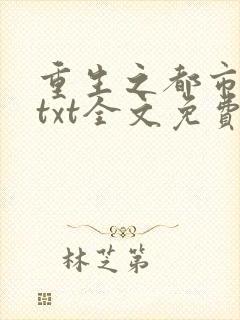 重生之都市
txt全文免費
林芝第